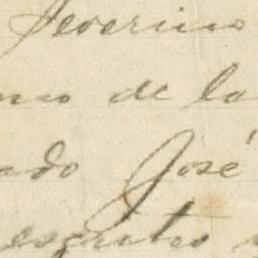 Severino
mo de la
ado José
escritos